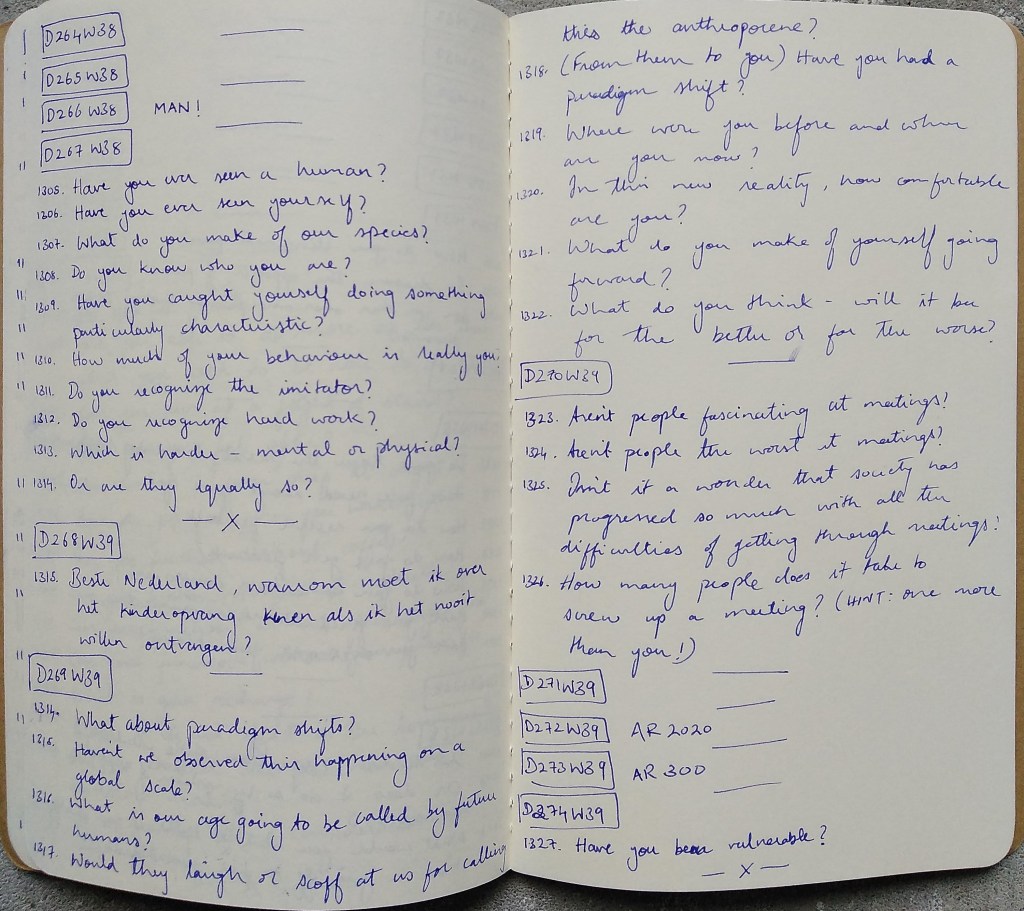 D264W38
D265W38
D266W38 MAN!
D267W38
1305. Have you ever seen a human?
1306. Have you ever seen yourself?
1307. What do you make of our species?
1308. Do you know who you are?
1309. Have you caught yourself doing something
particularly characteristic?
1310. How much of your behaviour is really you?
1311. Do you recognize the imitator?
1312. Do you recognize hard work?
1313. Which is harder - mental or physical?
1314. Or are they equally so?
X
D268W39
1315. Beste Nederland, waarom moet ik over
het kinderopvang kenen als ik het nooit
willen ontvangen?
D269W39
1314. What about paradigm shifts?
1315. Haven't we observed this happening on a
global scale?
1316. What is our age going to be called by future
humans?
1317. Would they laugh or scoff at us for calling
this the anthropocene?
1318. (From them to you) Have you had a
paradigm shift?
1319. Where were you before and where
are you now?
1320. In this new reality, how comfortable
are you?
1321. What do you make of yourself going
forward?
1322. What do you think - will it be
for the better or for the worse?
D270W39
1323. Aren't people fascinating at meetings?
1324. Aren't people the worst at meetings?
1325. Isn't it a wonder that society has
progressed so much with all the
difficulties of getting through meetings?
1326. How many people does it take to
screw up a meeting? (HINT: one more
than you!)
D271W39
D272W39 AR 2020
D273W39 AR 300
D274W39
1327. Have you been vulnerable?
X